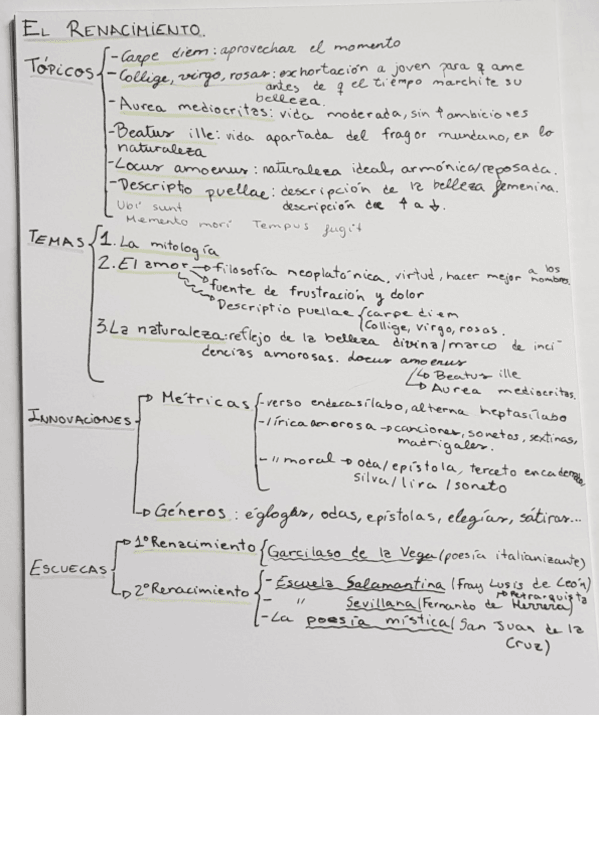 EL RENACIMIENTO.
TÓPICOS
-Carpe diem: aprovechar el momento
-Collige, virgo, rosas: exhortación a joven para q ame
antes de q el tiempo marchite su
belleza.
-Aurea mediocritas: vida moderada, sin ↑ ambiciones
-Beatus ille: vida apartada del fragor mundano, en lo
naturaleza
-Locus amoenus: naturaleza ideal, armónica/reposada.
-Descriptio puellae: descripción de la belleza femenina.
descripción de ↑ a ↓.
Ubi sunt
Memento mori Tempus fugit
TEMAS
1. La mitología
2. El amor → filosofía neoplatónica, virtud, hacer mejor a los
hombres.
fuente de frustración y dolor
Descriptio puellae carpe diem
Collige, virgo, rosas.
3. La naturaleza: reflejo de la belleza divina/marco de inci
dencias amorosas. Locus amoenus
↳ Beatus ille
↳ Aurea mediocritas.
INNOVACIONES
→ Métricas
-verso endecasílabo, alterna heptasílabo
-lírica amorosa → canciones, sonetos, sextinas,
madrigales.
- " moral → oda/epístola, terceto encadenado
silva/lira/soneto
→ Géneros: églogas, odas, epístolas, elegías, sátiras...
ESCUELAS
→ 1º Renacimiento Garcilaso de la Vega (poesía italianizante)
→ 2º Renacimiento
- Escuela Salamantina (Fray Luis de León)
→ Petrarquista
- " Sevillana (Fernando de Herrera)
- La poesía mística (San Juan de la
Cruz)